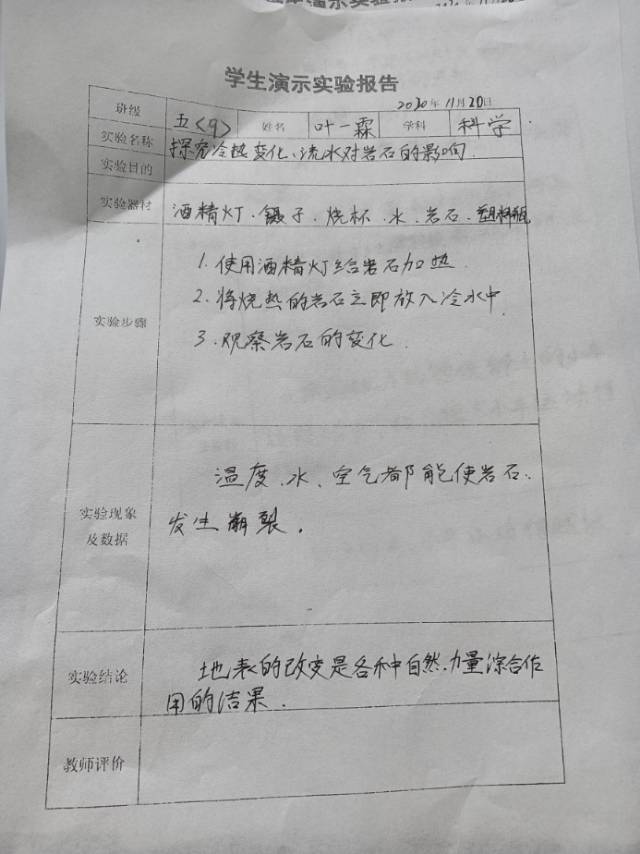 学生演示实验报告
2020年11月20日
班级 五<9> 姓名 叶一霖 学科 科学
实验名称 探究冷热变化、流水对岩石的影响
实验目的
实验器材 酒精灯、镊子、烧杯、水、岩石、塑料瓶
实验步骤
1. 使用酒精灯给岩石加热
2. 将烧热的岩石立即放入冷水中
3. 观察岩石的变化
实验现象
及数据
温度、水、空气都能使岩石
发生崩裂。
实验结论
地表的改变是各种自然力量综合作
用的结果。
教师评价